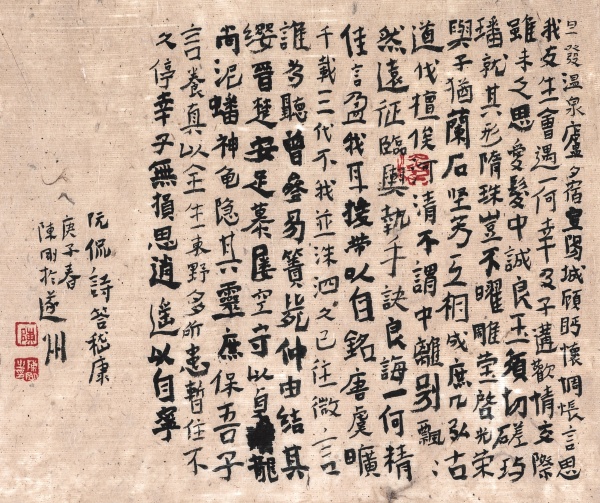 旦發溫泉廬夕宿宣陽城顧眄懷惆悵言思
我友生會遇一何幸及子遘歡情交際
雖未久思愛髮中誠良玉須切磋玙
璠就其形隋珠豈不曜雕瑩啓光榮
與子猶蘭石坚芳互相成庶几弘古
道伐檀俟河清不謂中離别飄〻
然遠征臨輿執手訣良誨一何精
佳言盈我耳援帶以自銘唐虞曠
千載三代不我並洙泗久已往微言
誰為聽曾參易簀斃仲由結其
纓晉楚安足慕屢空守以龍
尚泥蟠神龟隐其靈庶保吾子
言養真以全生東野多所患暫往不
久停幸子無損思逍遥以自寧
阮侃詩答嵇康
庚子春
陳剛於遂州